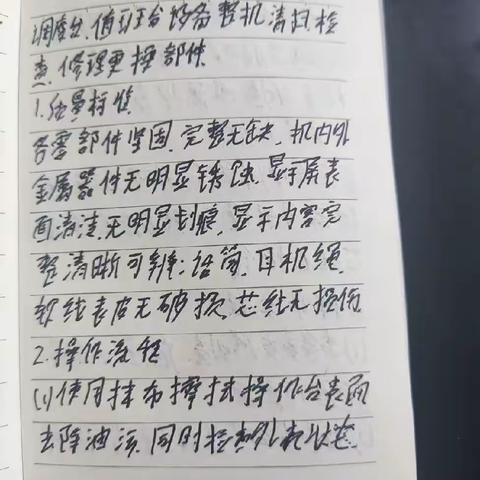 调度台、值班台设备整机清扫检
查、修理更换部件
1.质量标准
各零部件坚固、完整无缺、机内外
金属器件无明显锈蚀、显示屏表
面清洁、无明显划痕、显示内容完
整清晰可辨；话筒、耳机绳、
软线表皮无破损、芯线无损伤
2.操作流程
(1)使用抹布擦拭操作台表面
去除油污、同时检查